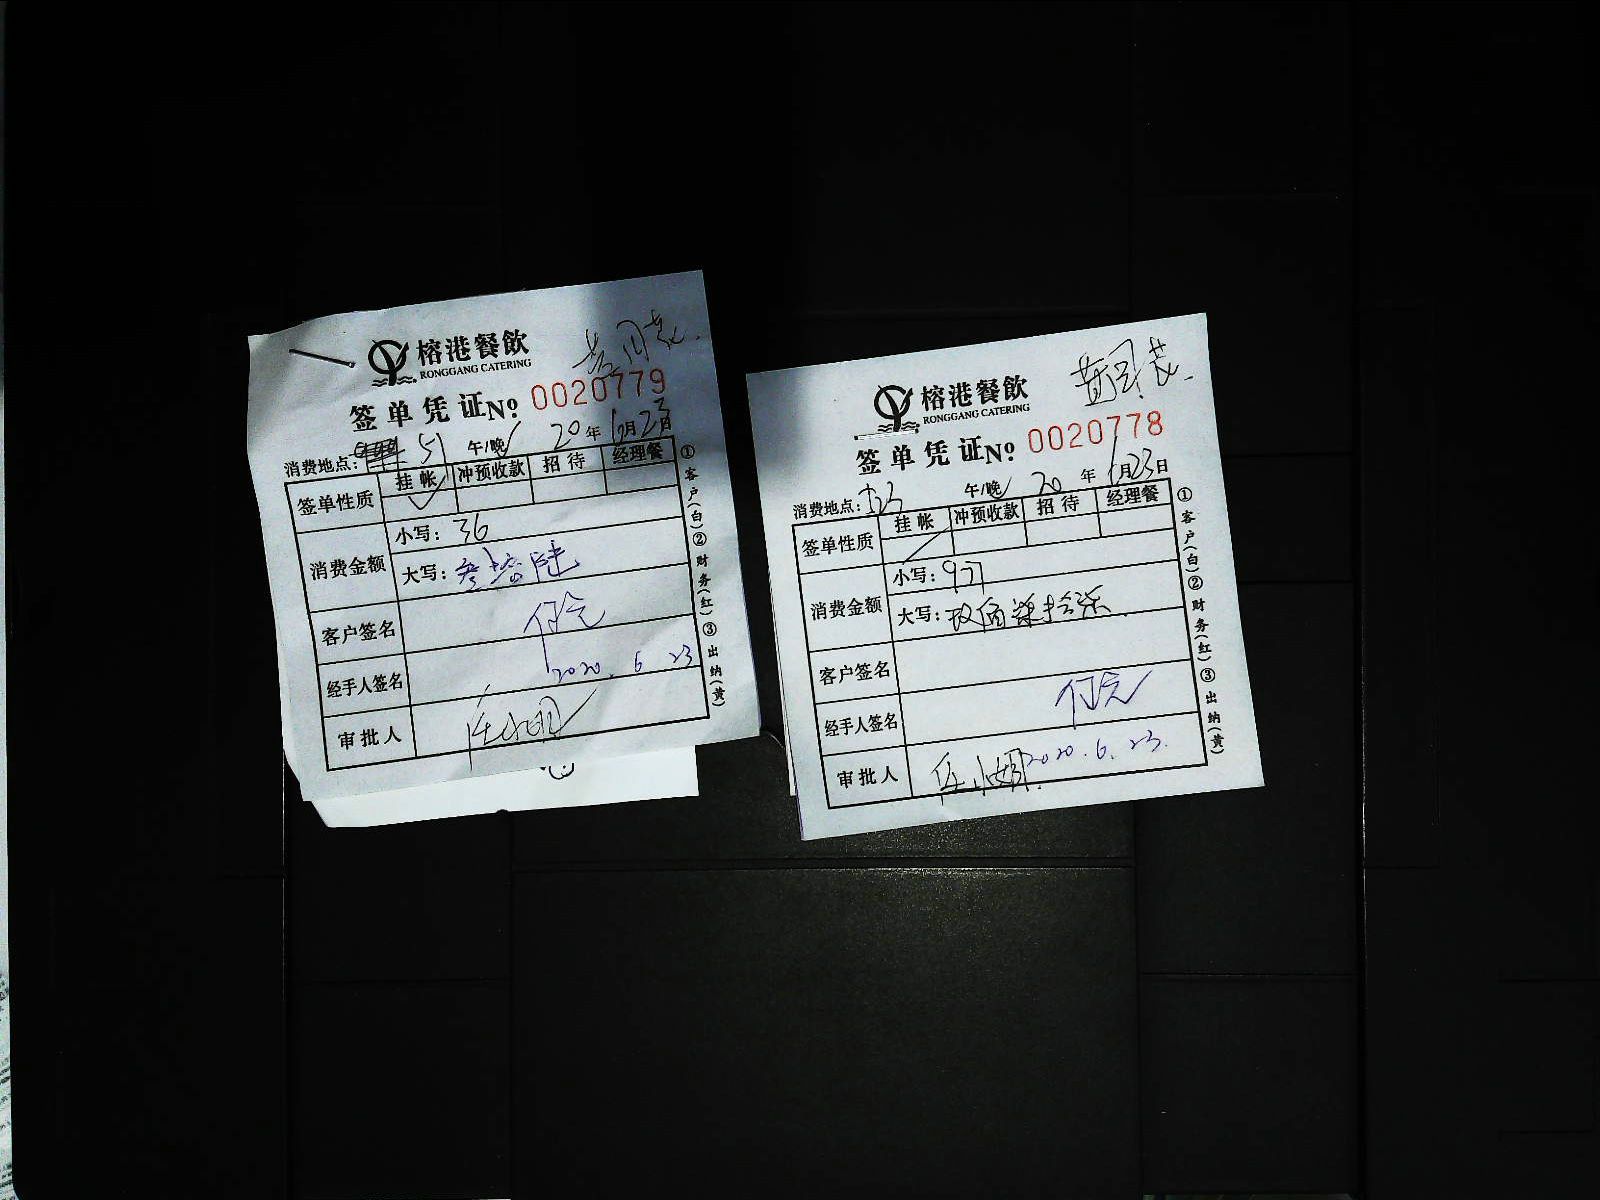 榕港餐飲
RONGGANG CATERING
签单凭证No. 0020779
消费地点: 51 午/晚 20年6月23日
签单性质 挂帐 冲预收款 招待 经理餐
消费金额 小写: 36
大写: 叁拾陆
客户签名
2020.6.23
经手人签名
审批人
①客户(白)②财务(红)③出纳(黄)
榕港餐飲
RONGGANG CATERING
签单凭证No. 0020778
消费地点: 午/晚 20年6月23日
签单性质 挂帐 冲预收款 招待 经理餐
消费金额 小写: 977
大写: 玖佰柒拾柒
客户签名
经手人签名
2020.6.23.
审批人
①客户(白)②财务(红)③出纳(黄)